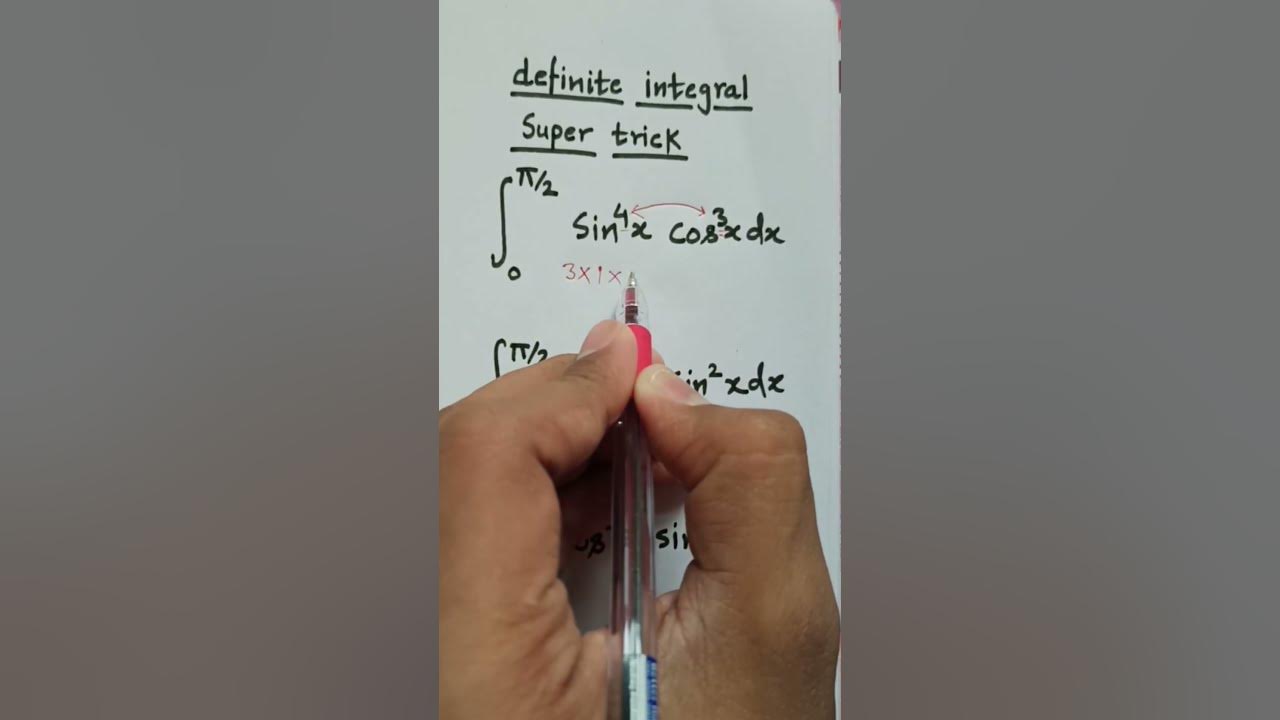 definite integral
Super trick
∫₀^π/2 Sin⁴x Cos³x dx
3×1×
∫ π/2 sin²x dx
sin